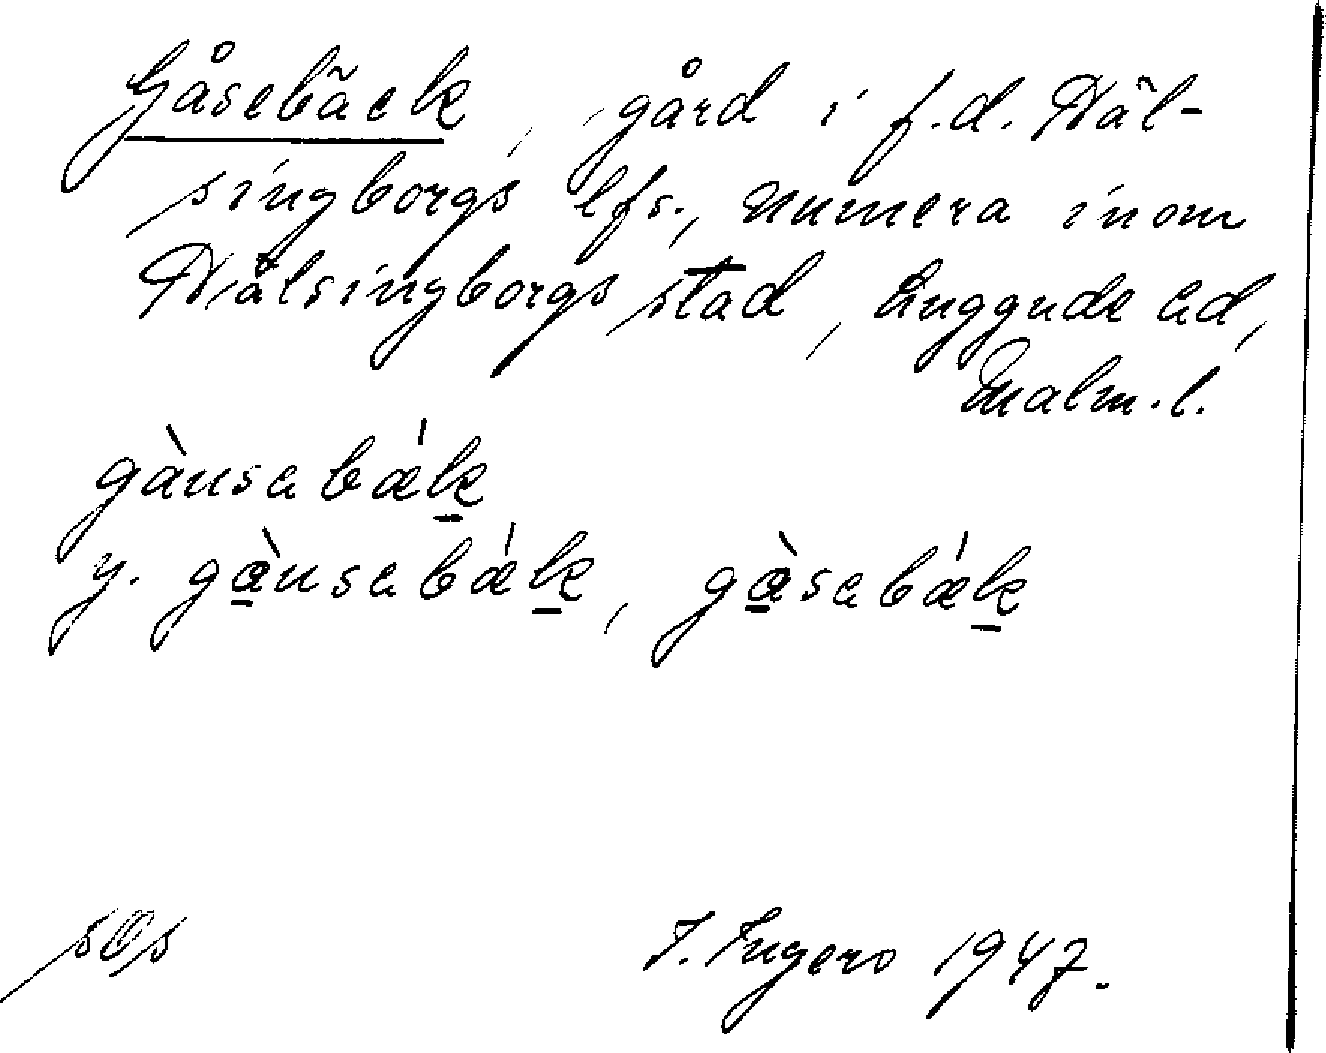 Gåsebäck, gård i f.d. Häl-
singborgs lfs., numera inom
Hälsingborgs stad, Luggude hd,
Malm.l.
gàusabǽk̲
y. gà̲usabǽk̲, gà̲sabǽk̲
I. Ingers 1947.